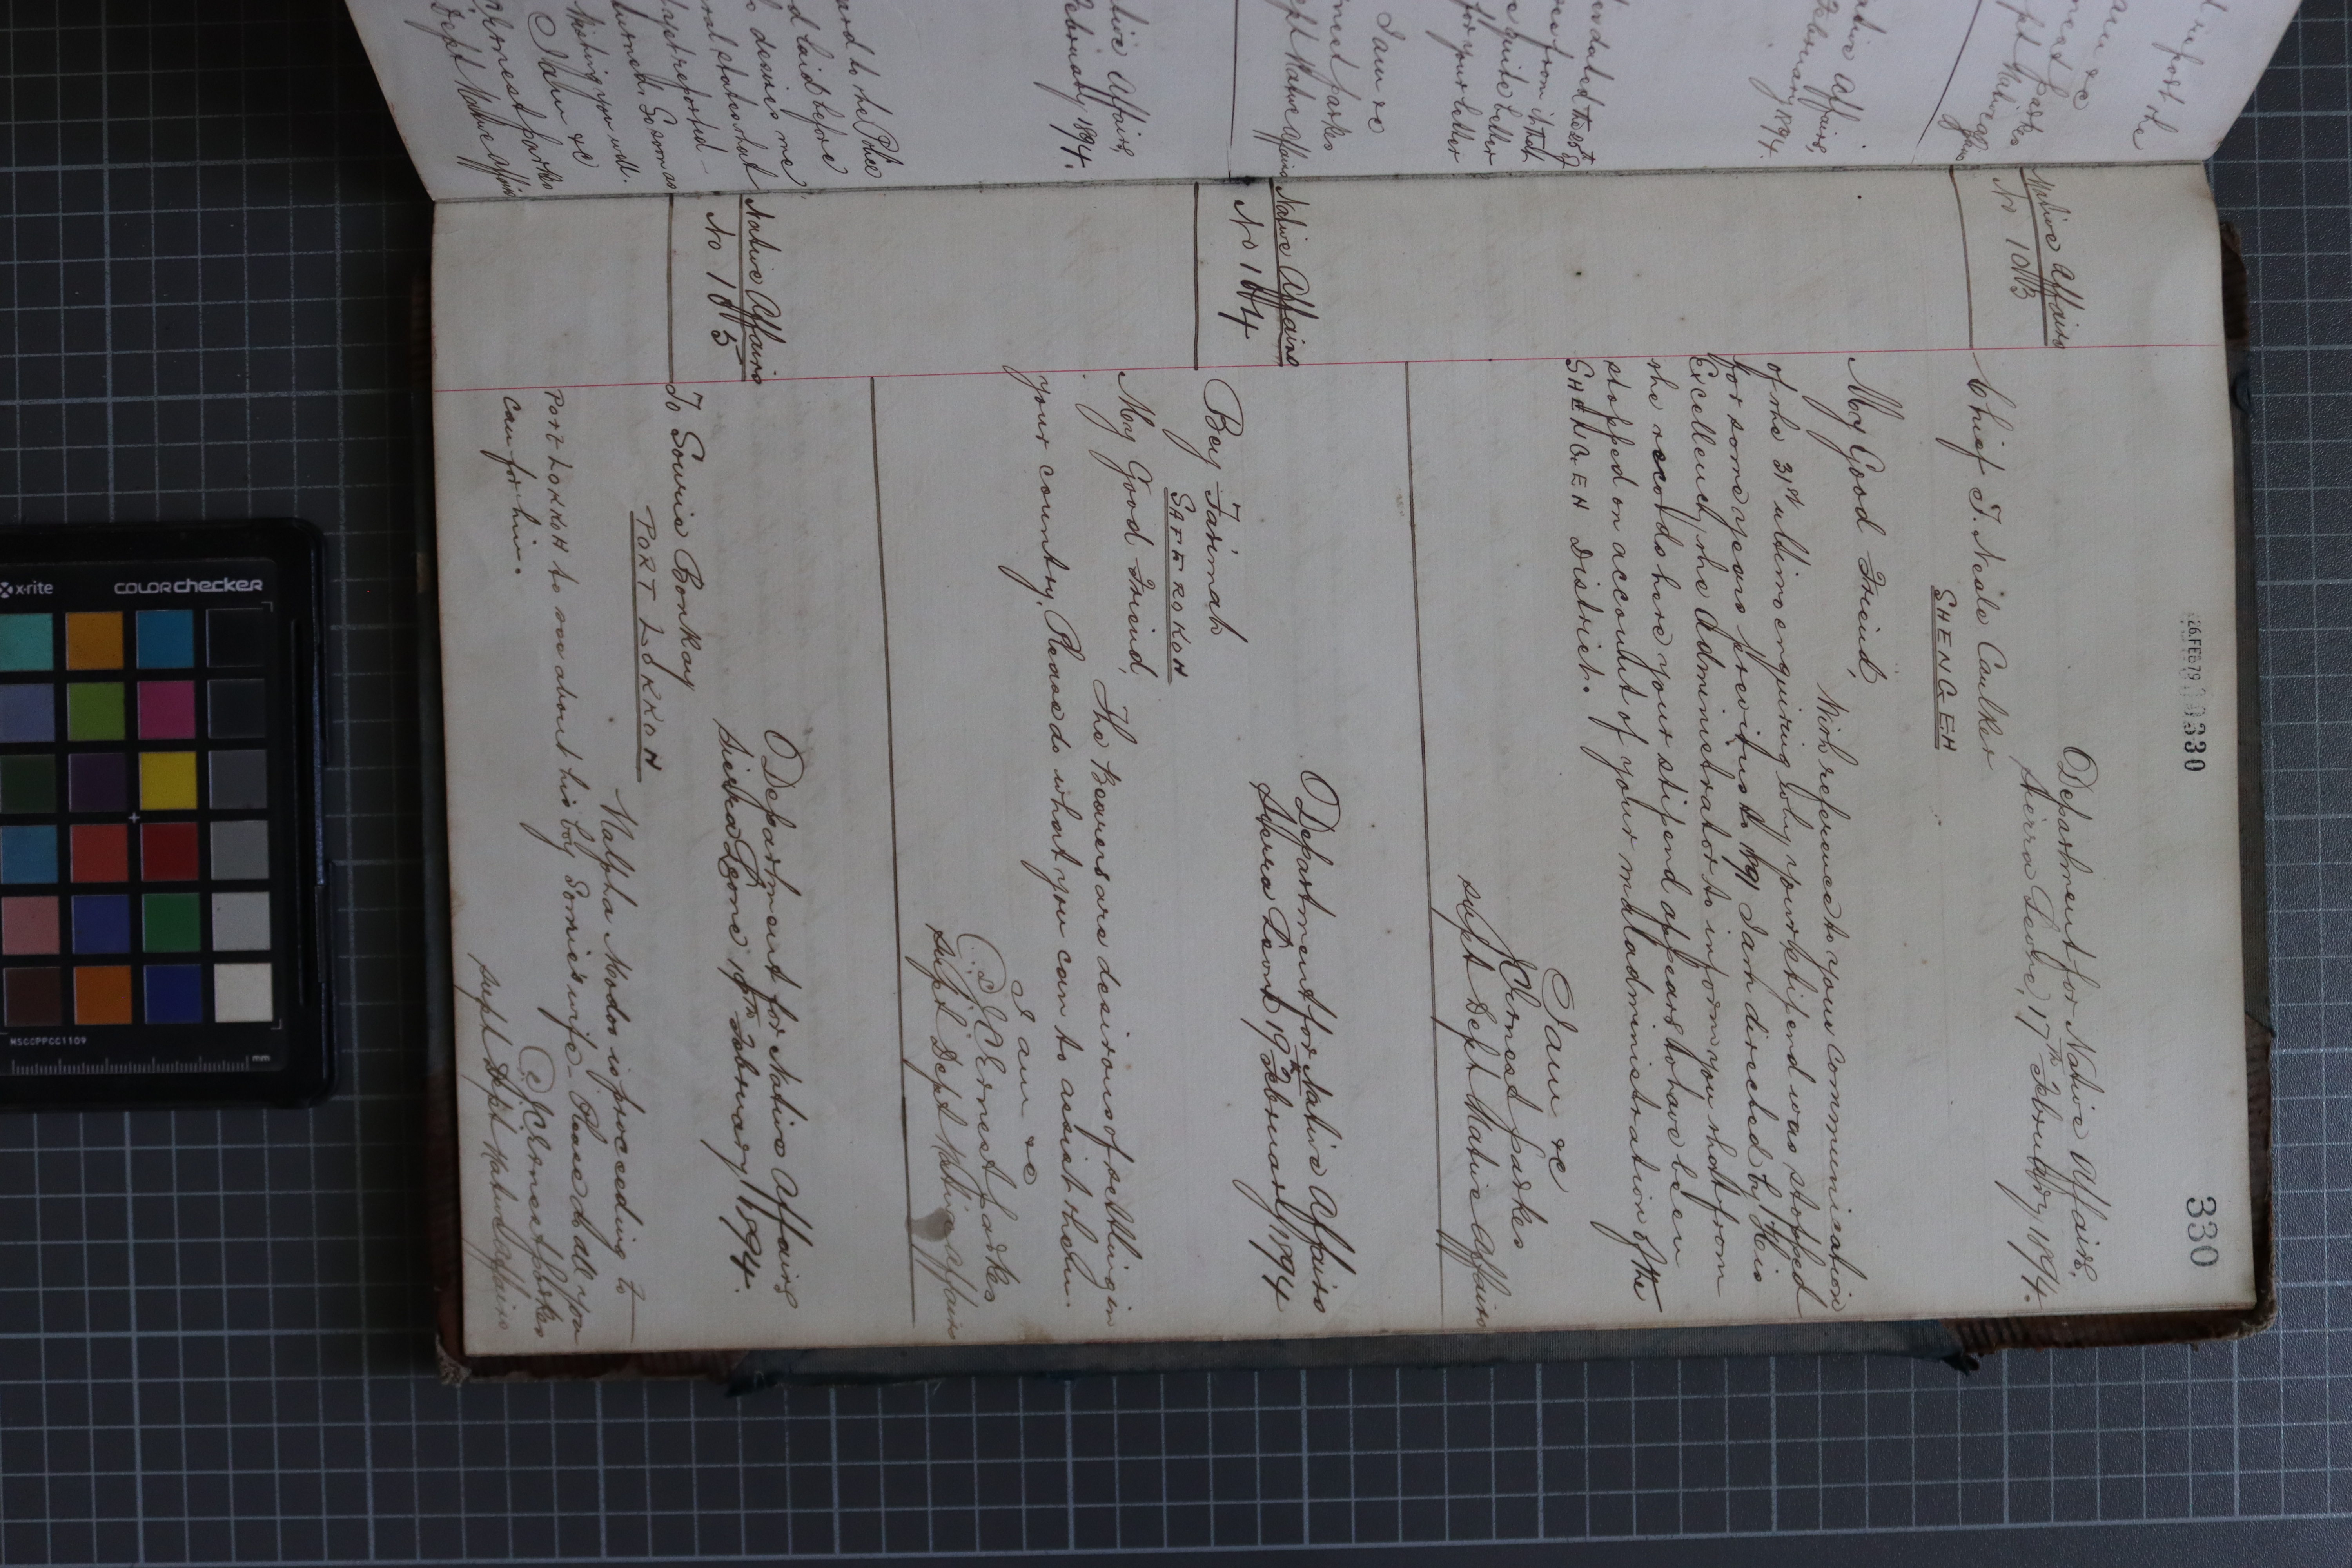 26 FEB 79 330
330
Native Affairs
No 103
Department for Native Affairs,
Sierra Leone, 17th February 1894.
Chief T. Neale Caulker
SHENGEH
My Good Friend,
With reference to your communication
of the 31st ultimo enquiring why your stipend was stopped
for some years previous to 1891 I am directed by His
Excellency the Administrator to inform you that from
the records here your stipend appears to have been
stopped on account of your maladministration of the
SHENGEH District.
I am &c
J C Ernest Parkes
Supt Dept Native Affairs
Native Affairs
No 104
Department for Native Affairs
Sierra Leone 19th February 1894
Bey Farimah
SAFROKOH
My Good Friend,
The Bearers are desirous of settling in
your country. Please do what you can to assist them.
I am &c
J C Ernest Parkes
Supt Dept Native Affairs
Native Affairs
No 105
Department for Native Affairs
Sierra Leone 19th February 1894.
To Sourie Bonkay
PORT LOKKOH
Malpha Modoo is proceeding to
PORT LOKKOH to see about his boy Somie's wife. Please do all you
can for him.
J C Ernest Parkes
Supt Dept Native Affairs
report the
I am &c
Ernest Parkes
Dept Native Affairs
Native Affairs,
February 1894.
for your letter
I am &c
Ernest Parkes
Dept Native Affairs
Native Affairs,
February 1894.
to the Police
and laid before
desires me
last reported
Wishing you well.
I am &c
Ernest Parkes
Dept Native Affairs
x-rite
colorchecker
MSCCPPCC1109
mm